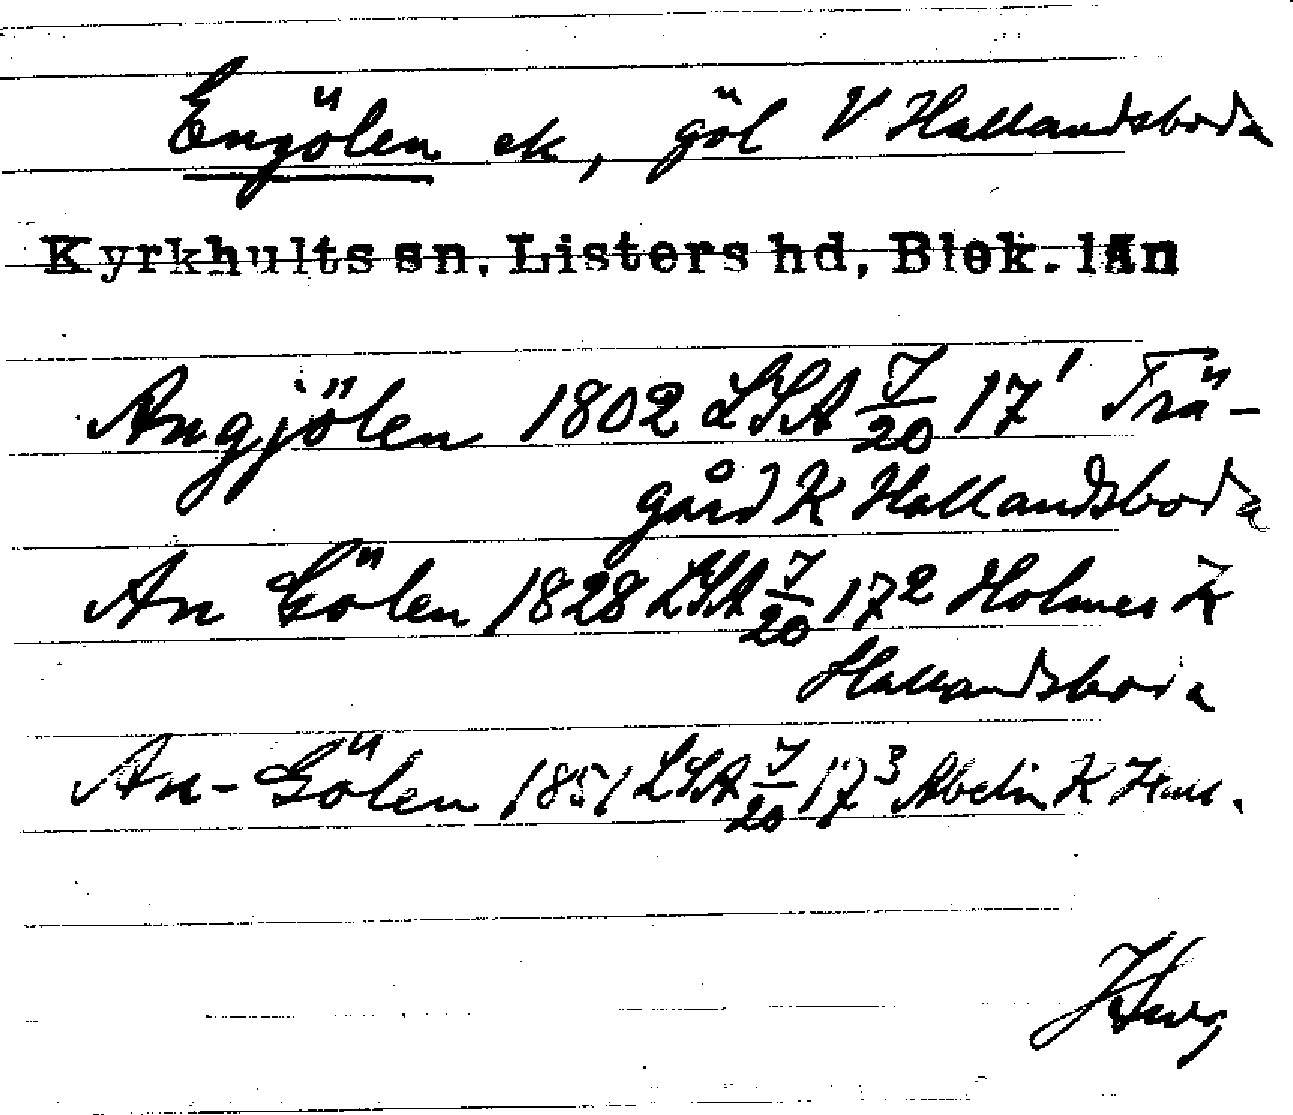 Engölen ek, göl V Hallandsboda
Kyrkhults sn, Listers hd, Blek. län
Angjölen 1802 LSA J/20 17¹ Trä-
gård K Hallandsboda
An Gölen 1828 LSA J/20 17² Holmes K
Hallandsboda
An-Gölen 1851 LSA J/20 17³ Abelin K